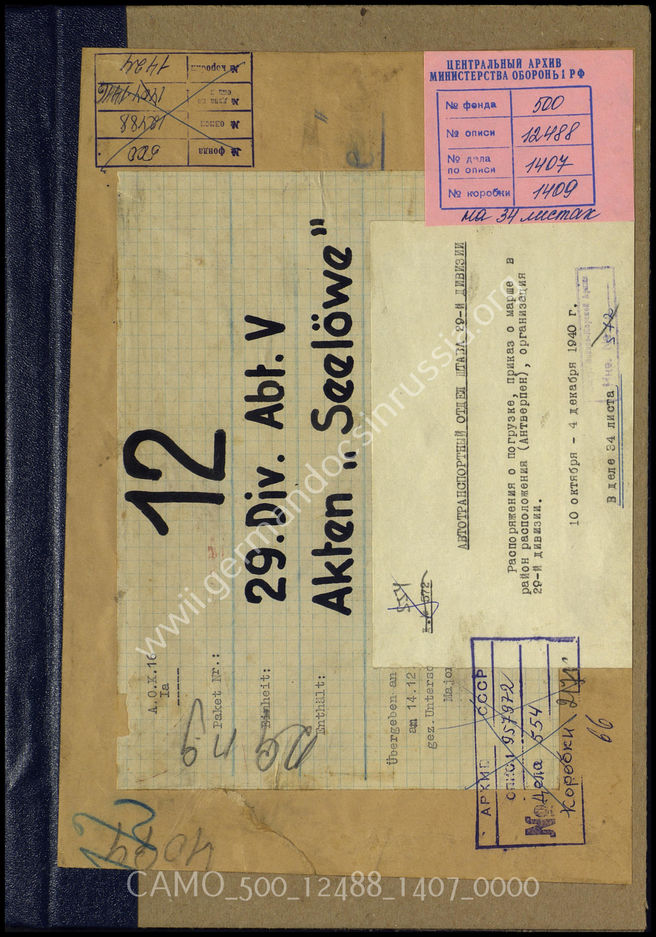 ЦЕНТРАЛЬНЫЙ АРХИВ
МИНИСТЕРСТВА ОБОРОНЫ РФ
№ фонда 500
№ описи 12488
№ дела по описи 1407
№ коробки 1409
на 34 листах
№ коробки 1424
№ описи 12488
№ фонда 500
12
29.Div. Abt. V
Akten „Seelöwe"
A.O.K.16
Ia
Paket Nr.:
Einheit:
Enthält:
Übergeben an
am 14.12
gez. Untersc
Major
АВТОТРАНСПОРТНЫЙ ОТДЕЛ ШТАБА 29-Й ДИВИЗИИ
Распоряжения о погрузке, приказ о марше в
район расположения (Антверпен), организация
29-й дивизии.
10 октября - 4 декабря 1940 г.
В деле 34 листа
Инв. 572
554
572
АРХИВ СССР
описи 957972
№ Дела 554
Коробки
66
12
www.germandocsinrussia.org
CAMO_500_12488_1407_0000